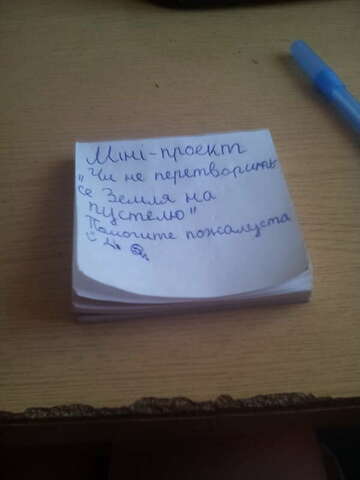 Міні-проект
"Чи не перетворить
ся Земля на
пустелю"
Помогите пожалуста